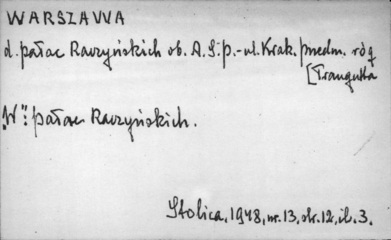 WARSZAWA
d. pałac Raczyńskich ob. A.S.P. - ul. Krak. Przedm. róg
[Traugutta
"W": pałac Raczyńskich.
Stolica, 1948, nr. 13, str. 12, il. 3.